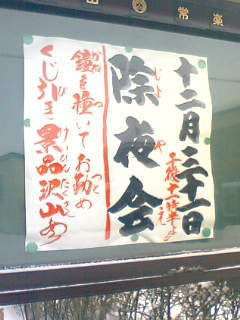 常楽
十二月三十一日
午後十一時半より
除夜会
じょやえ
鐘を撞いてお勤め
かね つ つと
くじ引き景品沢山あり
び けいひんたくさん